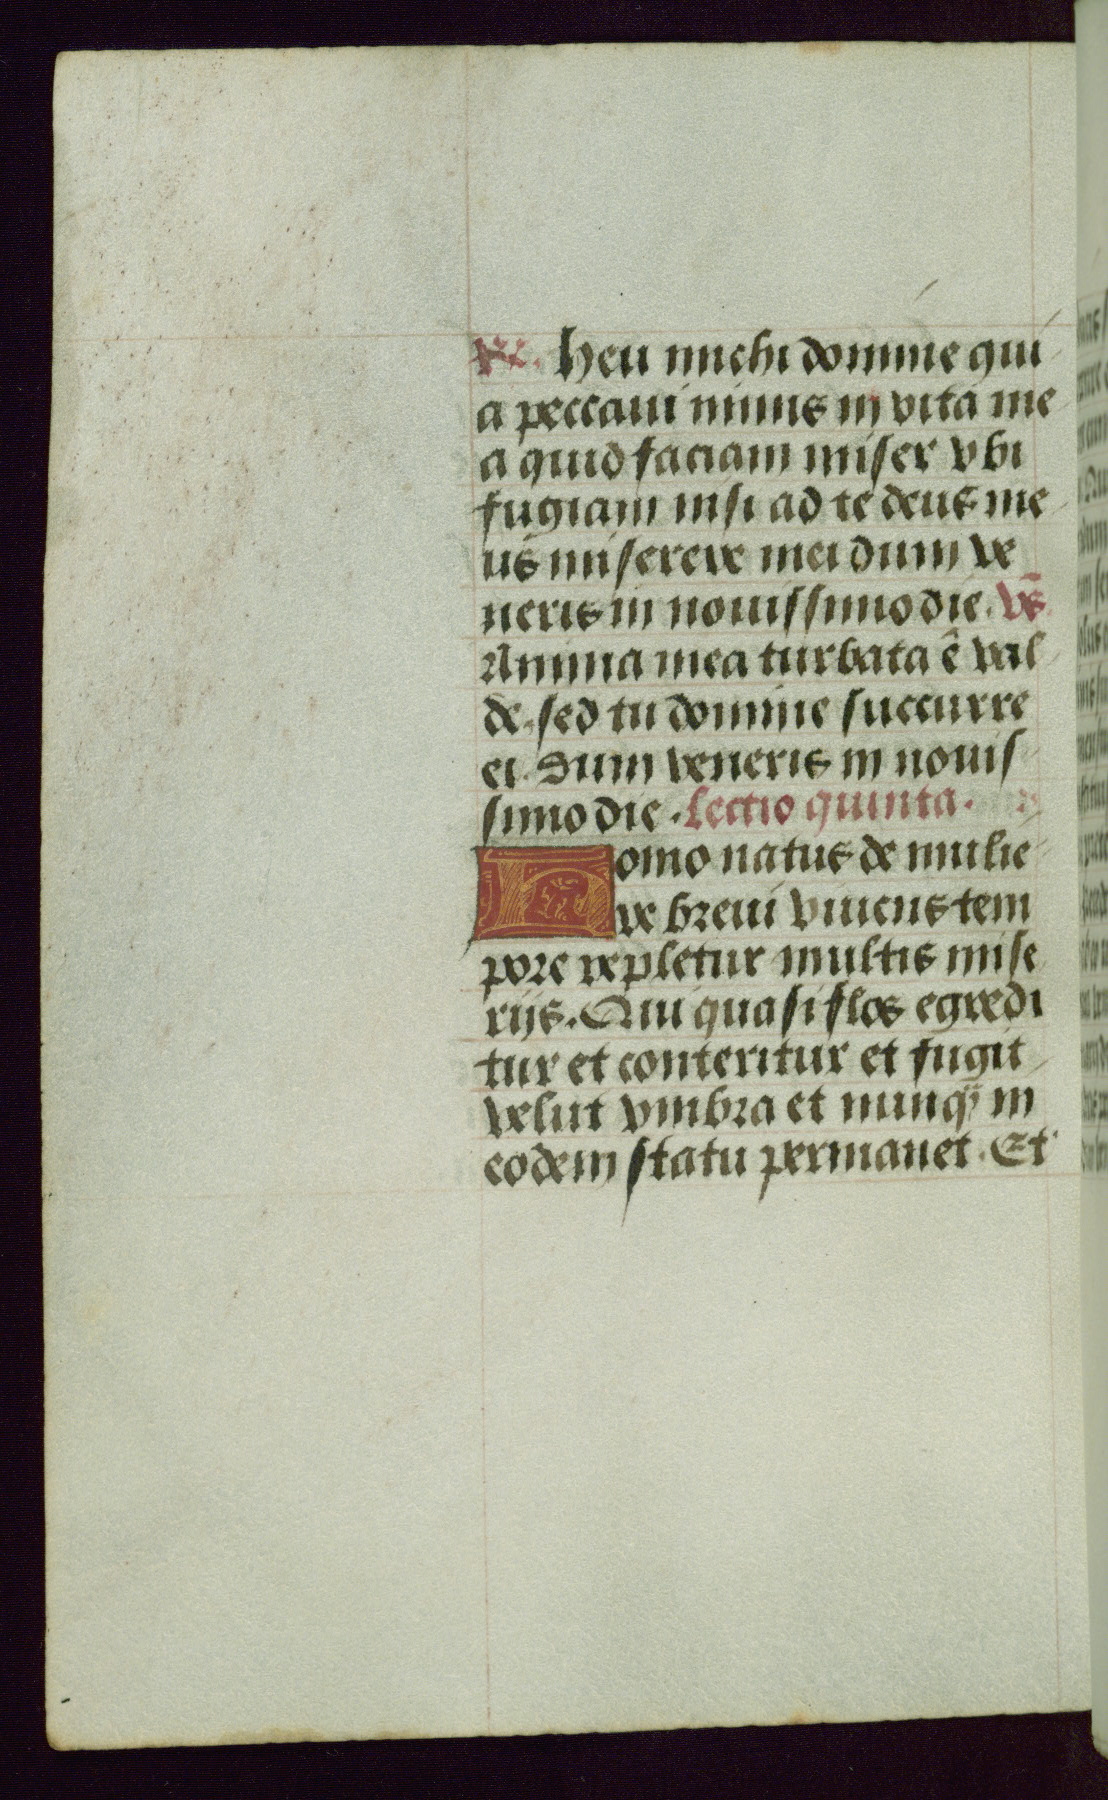 R̷. Heu michi domine qui
a peccaui nimis in vita me
a quid faciam miser vbi
fugiam nisi ad te deus me
us miserere mei dum ve
neris in nouissimo die. Vs̄
Anima mea turbata ē val
de. sed tu domine succurre
ei. Dum veneris in nouis
simo die. Lectio quinta.
Homo natus de mulie
re breui viuens tem
pore repletur multis mise
rijs. Qui quasi flos egredi
tur et conteritur et fugit
velut vmbra et nunqꝫ in
eodem statu permanet. Et